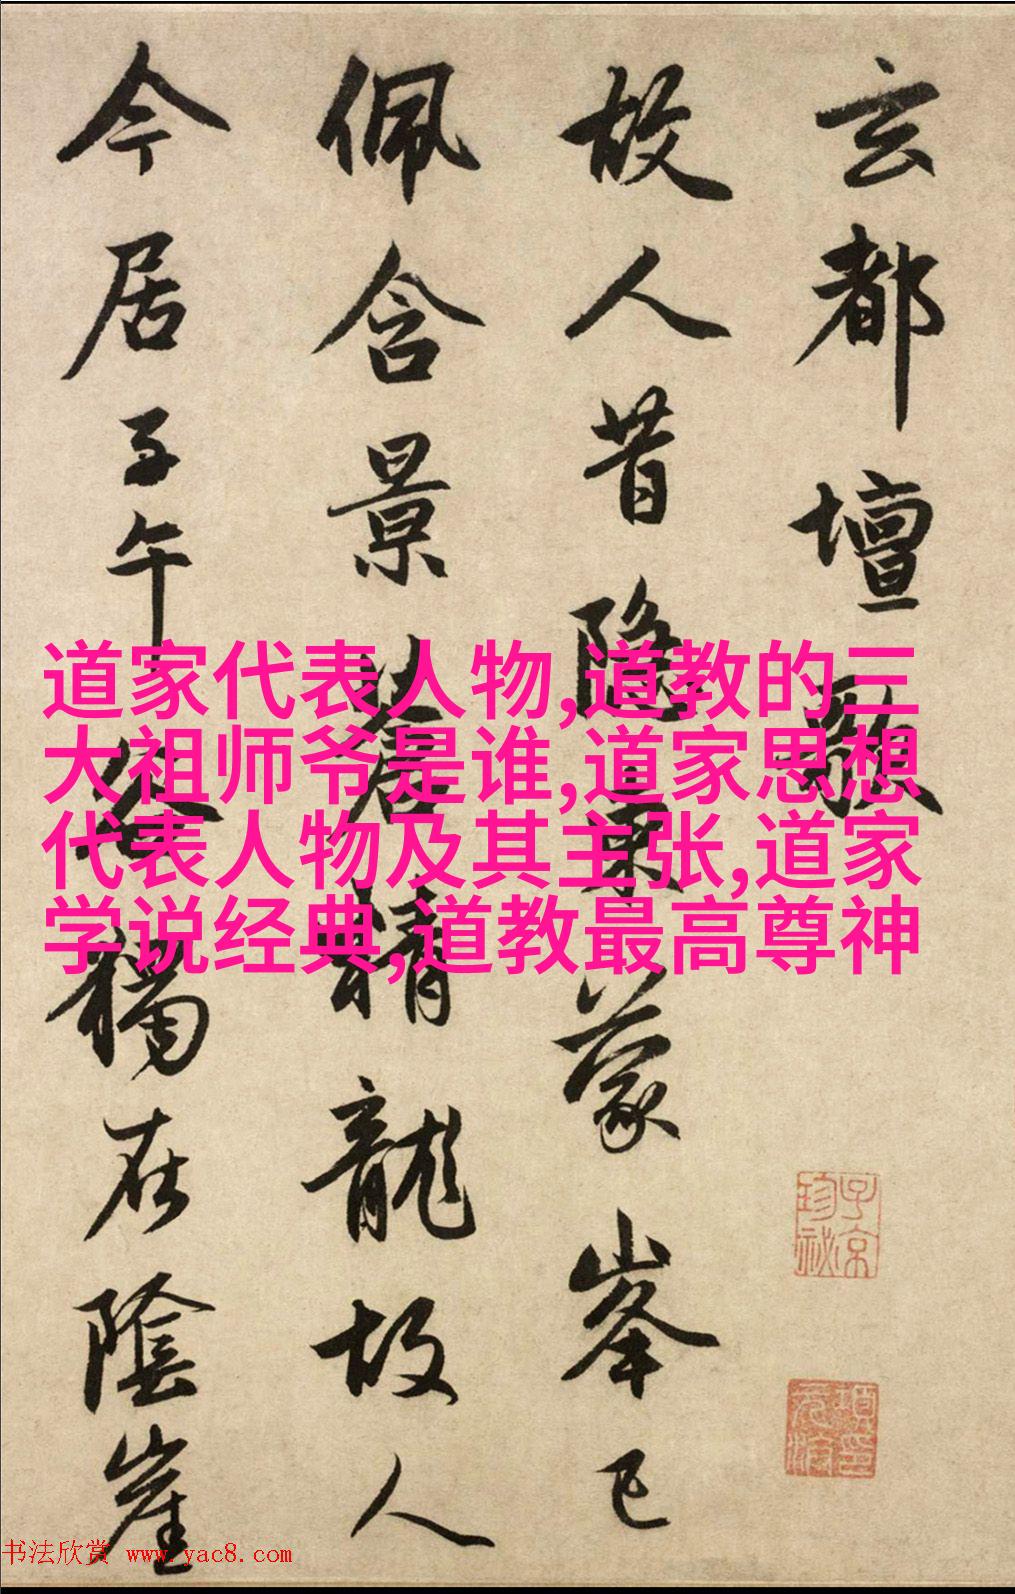 玄都壇歌
故人昔隱東蒙峯已
佩含景蒼精龍故人
今居子午谷獨在陰崖
道家代表人物,道教的三
大祖师爷是谁,道家思想
代表人物及其主张,道家
学说经典,道教最高尊神
子京珍祕
项元汴印
书法欣赏 www.yac8.com